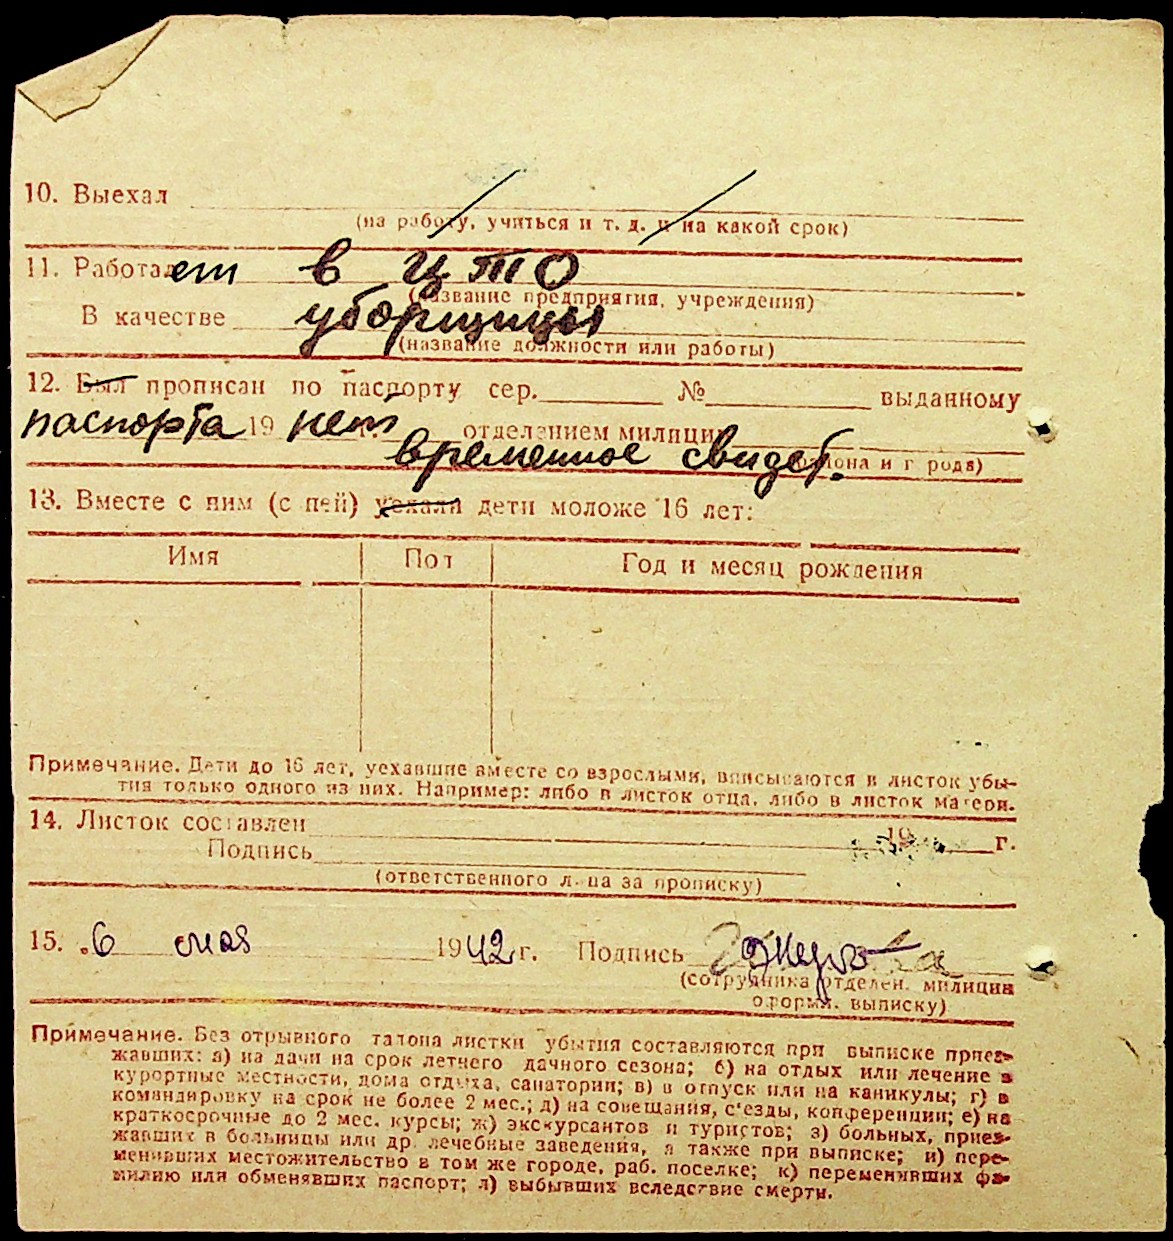 10. Выехал
(на работу, учиться и т. д. и на какой срок)
11. Работает в ЦТО
(название предприятия, учреждения)
В качестве уборщицы
(название должности или работы)
12. Был прописан по паспорту сер. № выданному
паспорта 19 нет г. отделением милиции
временное свидет.
(района и города)
13. Вместе с ним (с ней) уехали дети моложе 16 лет:
Имя Пол Год и месяц рождения
Примечание. Дети до 16 лет, уехавшие вместе со взрослыми, вписываются в листок убы-
тия только одного из них. Например: либо в листок отца, либо в листок матери.
14. Листок составлен 19 г.
Подпись
(ответственного лица за прописку)
15. 6 мая 1942 г. Подпись
(сотрудника отделен. милиции
оформ. выписку)
Примечание. Без отрывного талона листки убытия составляются при выписке приез-
жавших: а) на дачи на срок летнего дачного сезона; б) на отдых или лечение в
курортные местности, дома отдыха, санатории; в) в отпуск или на каникулы; г) в
командировку на срок не более 2 мес.; д) на совещания, с'езды, конференции; е) на
краткосрочные до 2 мес. курсы; ж) экскурсантов и туристов; з) больных, приез-
жавших в больницы или др. лечебные заведения, а также при выписке; и) пере-
менивших местожительство в том же городе, раб. поселке; к) переменивших фа-
милию или обменявших паспорт; л) выбывших вследствие смерти.